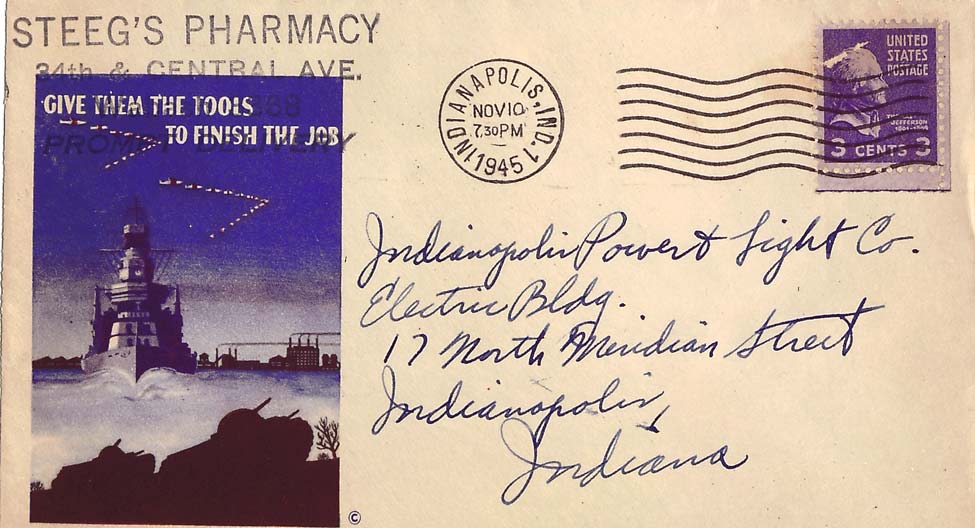 STEEG'S PHARMACY
34th & CENTRAL AVE.
GIVE THEM THE TOOLS
TO FINISH THE JOB
INDIANAPOLIS, IND. 1
NOV 10
7.30 PM
1945
UNITED
STATES
POSTAGE
JEFFERSON
3 CENTS 3
Indianapolis Power & Light Co.
Electric Bldg.
17 North Meridian Street
Indianapolis,
Indiana
©